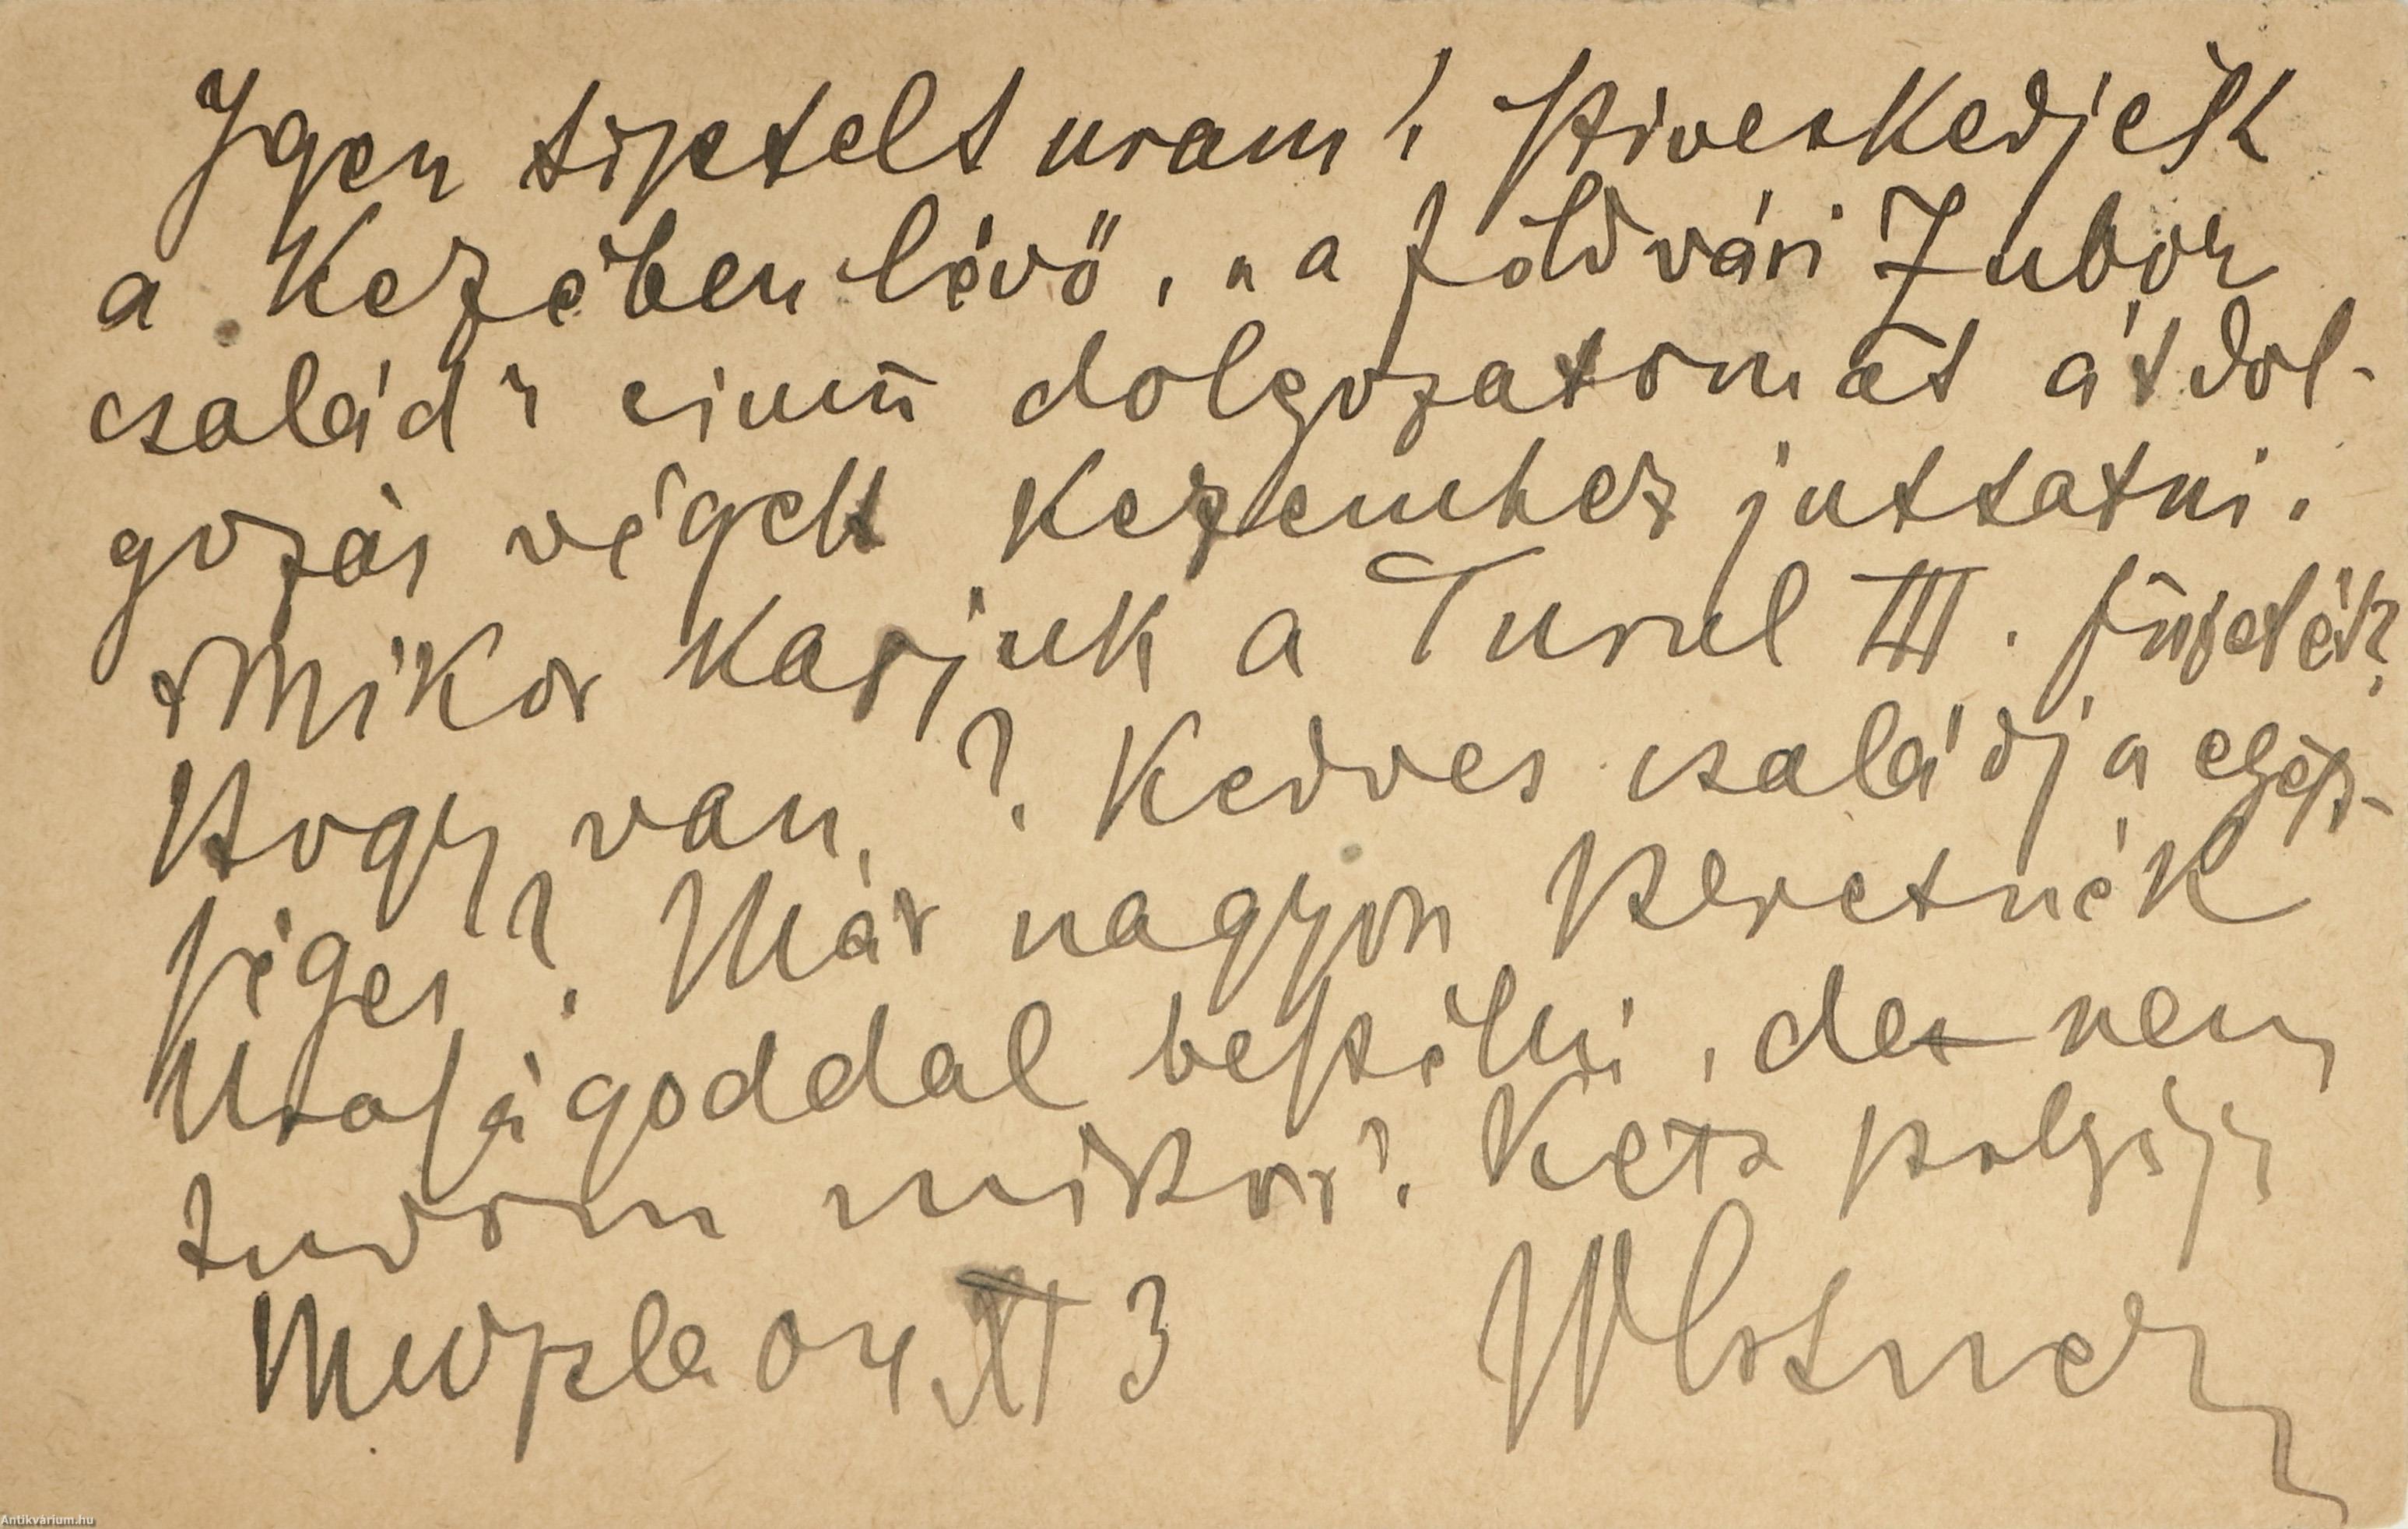 Igen tisztelt uram! Sziveskedjék
a kezében lévő, „a földvári Zubor
család" cimü dolgozatomat átdol-
gozás végett kezemhez juttatni.
Mikor kapjuk a Turul III. füzetét?
Hogy van? Kedves családja egész-
séges? Már nagyon szeretnék
Uraságoddal beszélni, de nem
tudom mikor? kész szolgája
04 XI 3
Antikvárium.hu